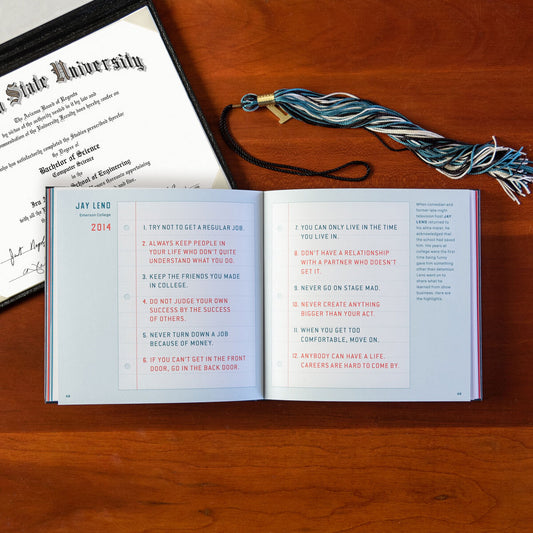 State University
The Arizona Board of Regents
by virtue of the authority vested in it by law and
recommendation of the University Faculty does hereby confer on
who has satisfactorily completed the Studies prescribed therefor
the Degree of
Bachelor of Science
Computer Science
School of Engineering
JAY LENO
Emerson College
2014
1. TRY NOT TO GET A REGULAR JOB.
2. ALWAYS KEEP PEOPLE IN
YOUR LIFE WHO DON'T QUITE
UNDERSTAND WHAT YOU DO.
3. KEEP THE FRIENDS YOU MADE
IN COLLEGE.
4. DO NOT JUDGE YOUR OWN
SUCCESS BY THE SUCCESS
OF OTHERS.
5. NEVER TURN DOWN A JOB
BECAUSE OF MONEY.
6. IF YOU CAN'T GET IN THE FRONT
DOOR, GO IN THE BACK DOOR.
48
7. YOU CAN ONLY LIVE IN THE TIME
YOU LIVE IN.
8. DON'T HAVE A RELATIONSHIP
WITH A PARTNER WHO DOESN'T
GET IT.
9. NEVER GO ON STAGE MAD.
10. NEVER CREATE ANYTHING
BIGGER THAN YOUR ACT.
11. WHEN YOU GET TOO
COMFORTABLE, MOVE ON.
12. ANYBODY CAN HAVE A LIFE.
CAREERS ARE HARD TO COME BY.
When comedian and
former late night
television host JAY
LENO returned to
his alma mater, he
acknowledged that
the school had saved
him. His years at
college were the first
time being funny
gave him something
other than detention.
Leno went on to
share what he
learned from show
business. Here are
the highlights.
49